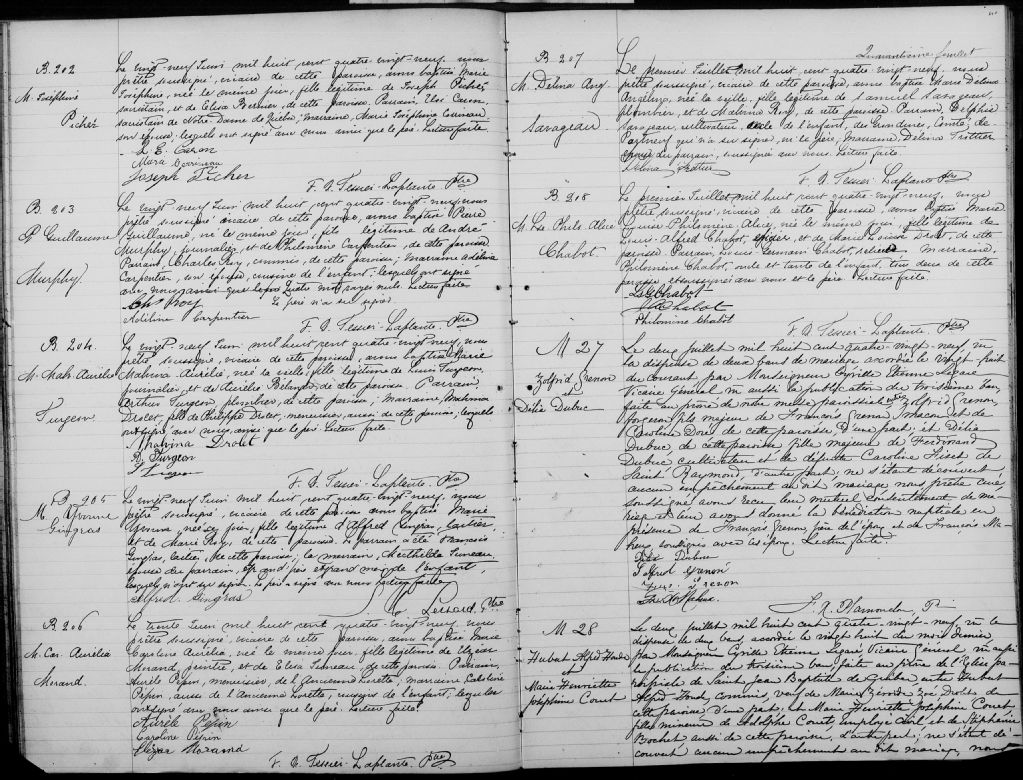 B. 202
M. Joséphine
Picher
Le vingt-neuf Juin mil huit cent quatre-vingt-neuf, nous
prêtre soussigné, vicaire de cette paroisse, avons baptisé Marie
Joséphine, née le même jour, fille légitime de Joseph Picher,
sacristain, et de Eliza Bernier, de cette paroisse. Parrain, Elzé Caron,
sacristain de Notre-Dame de Québec; marraine, Marie Joséphine
son épouse, lesquels ont signé avec nous ainsi que le père. Lecture faite
L. E. Caron
Joseph Picher
F. X. Tessier-Laplante, Ptre
B. 203
P. Guillaume
Murphy
Le vingt-neuf Juin mil huit cent quatre-vingt-neuf, nous
prêtre soussigné, vicaire de cette paroisse, avons baptisé Pierre
Guillaume, né le même jour, fils légitime de André
Murphy, journalier, et de Philomène Carpentier, de cette paroisse
Parrain, Charles Roy, commis, de cette paroisse; marraine Adelina
Carpentier, son épouse, cousine de l'enfant, lesquels ont signé
avec nous
Quatre mots rayés nuls. Lecture faite
Chs Roy Le père n'a su signer
Adéline Carpentier
F. X. Tessier-Laplante, Ptre
B. 204
M. Math. Aurélie
Turgeon
Le vingt-neuf Juin mil huit cent quatre-vingt-neuf, nous
prêtre soussigné, vicaire de cette paroisse, avons baptisé Marie
Malvina Aurélie, née la veille, fille légitime de Louis Turgeon,
journalier, et de Aurélie Belanger, de cette paroisse. Parrain,
Arthur Turgeon, plombier, de cette paroisse; marraine, Malvina
Drolet, fille de Philippe Drolet, menuisier, aussi de cette paroisse, lesquels
ont signé avec nous, ainsi que le père. Lecture faite
Malvina Drolet
A. Turgeon
L Turgeon
F. X. Tessier-Laplante, Ptre
B. 205
M. Yvonne
Gingras
Le vingt-neuf Juin mil huit cent quatre-vingt-neuf, nous
prêtre soussigné, vicaire de cette paroisse avons baptisé Marie
née ce jour, fille légitime d'Alfred Gingras,
et de Marie Roy, de cette paroisse. Le parrain a été François
Gingras, de cette paroisse; la marraine, Mathilde
épouse du parrain, grand-père et grand-mère de l'enfant,
lesquels n'ont su signer. Le père a signé avec nous. Lecture faite
Alfred Gingras
Lessard, Ptre
B. 206
M. Car. Aurélia
Morand
Le trente Juin mil huit cent quatre-vingt-neuf, nous
prêtre soussigné, vicaire de cette paroisse, avons baptisé Marie
Caroline Aurélia, née le même jour, fille légitime de Elzéar
Morand, peintre, et de Eliza de cette paroisse. Parrain,
Aurèle Pépin, menuisier, de l'Ancienne Lorette; marraine Caroline
Pépin, aussi de l'Ancienne Lorette, cousins de l'enfant, lesquels
ont signé avec nous ainsi que le père. Lecture faite
Aurèle Pépin
Caroline Pépin
Elzéar Morand
F. X. Tessier-Laplante, Ptre
Quarantième feuillet
B. 207
M. Delina Ang.
Savageau
Le premier Juillet mil huit cent quatre-vingt-neuf, nous
prêtre soussigné, vicaire de cette paroisse, avons baptisé Marie Delina
Angelina, née la veille, fille légitime de Samuel Savageau,
plombier, et de Malvina Roy, de cette paroisse. Parrain, Delphis
Savageau, cultivateur, oncle de l'enfant, des Grondines, Comté de
Portneuf qui n'a su signer, ni le père, marraine, Delina Trottier
épouse du parrain, soussignée avec nous. Lecture faite
Delina Trottier
F. X. Tessier-Laplante, Ptre
B. 208
M. Lse Phile. Alice
Chabot
Le premier Juillet mil huit cent quatre-vingt-neuf, nous
prêtre soussigné, vicaire de cette paroisse, avons baptisé Marie
Louise Philomène Alice, née le même jour, fille légitime de
Louis-Alfred Chabot, épicier, et de Marie Louise Drolet, de cette
paroisse. Parrain, Louis-Germain Chabot, Marraine,
Philomène Chabot, oncle et tante de l'enfant, tous deux de cette
paroisse, et soussignés avec nous et le père. Lecture faite
L. G. Chabot
L A Chabot
Philomène Chabot
F. X. Tessier-Laplante, Ptre
M 27
Zolfrid Grenon
et
Délia Dubuc
Le deux juillet mil huit cent quatre-vingt-neuf, vu
la dispense de deux bans de mariage accordée le vingt-huit
du courant par Monseigneur Cyrille Etienne Légaré
Vicaire Général vu aussi la publication du troisième ban
faite au prône de notre messe paroissiale entre Zolfrid Grenon,
forgeron, fils majeur de François Grenon, maçon, et de
Caroline Doré de cette paroisse, d'une part; et Délia
Dubuc, de cette paroisse, fille majeure de Ferdinand
Dubuc cultivateur et de défunte Caroline
Saint Raymond, d'autre part; ne s'étant découvert
aucun empêchement au dit mariage nous prêtre curé
soussigné avons reçu leur mutuel consentement de ma-
riage et leur avons donné la bénédiction nuptiale en
présence de François Grenon, père de l'époux et de François
soussignés avec les époux. Lecture faite.
Délia Dubuc
Zolfrid Grenon
Grenon
F. X. Plamondon, Ptre
M 28
Hubert Alfred Houde
et
Marie Henriette
Joséphine Couet
Le deux juillet mil huit cent quatre-vingt-neuf, vu la
dispense de deux bans, accordée le vingt-huit du mois dernier
par Monseigneur Cyrille Etienne Légaré Vicaire Général, vu aussi
la publication du troisième ban faite au prône de l'Eglise pa-
roissiale de Saint Jean Baptiste de Québec entre Hubert
Alfred Houde, commis, veuf de Marie Zoé Drolet de
cette paroisse d'une part; et Marie Henriette Joséphine Couet
fille mineure de Adolphe Couet, employé civil et de Stéphanie
Bochet aussi de cette paroisse, d'autre part; ne s'étant dé-
couvert aucun empêchement au dit mariage, nous